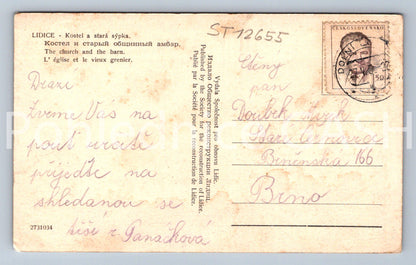 LIDICE - Kostel a stará sýpka.
Костел и старый общинный амбар.
The church and the barn.
L' église et le vieux grenier.
ST 12655
Drazí
Zveme Vás na
pouť určitě
přijeďte na
shledanou se
těší r. Panáčková
2731934
Vydala Společnost pro obnovu Lidic.
Издало Общество реконструкции Лидиц.
Published by the Society for the reconstruction of Lidice.
Publié par la Société pour la reconstruction de Lidice.
ČESKOSLOVENSKO
DOLNÍ
50
Ctěný
pan
Doubek Josef
Stará
Brněnská 166
Brno